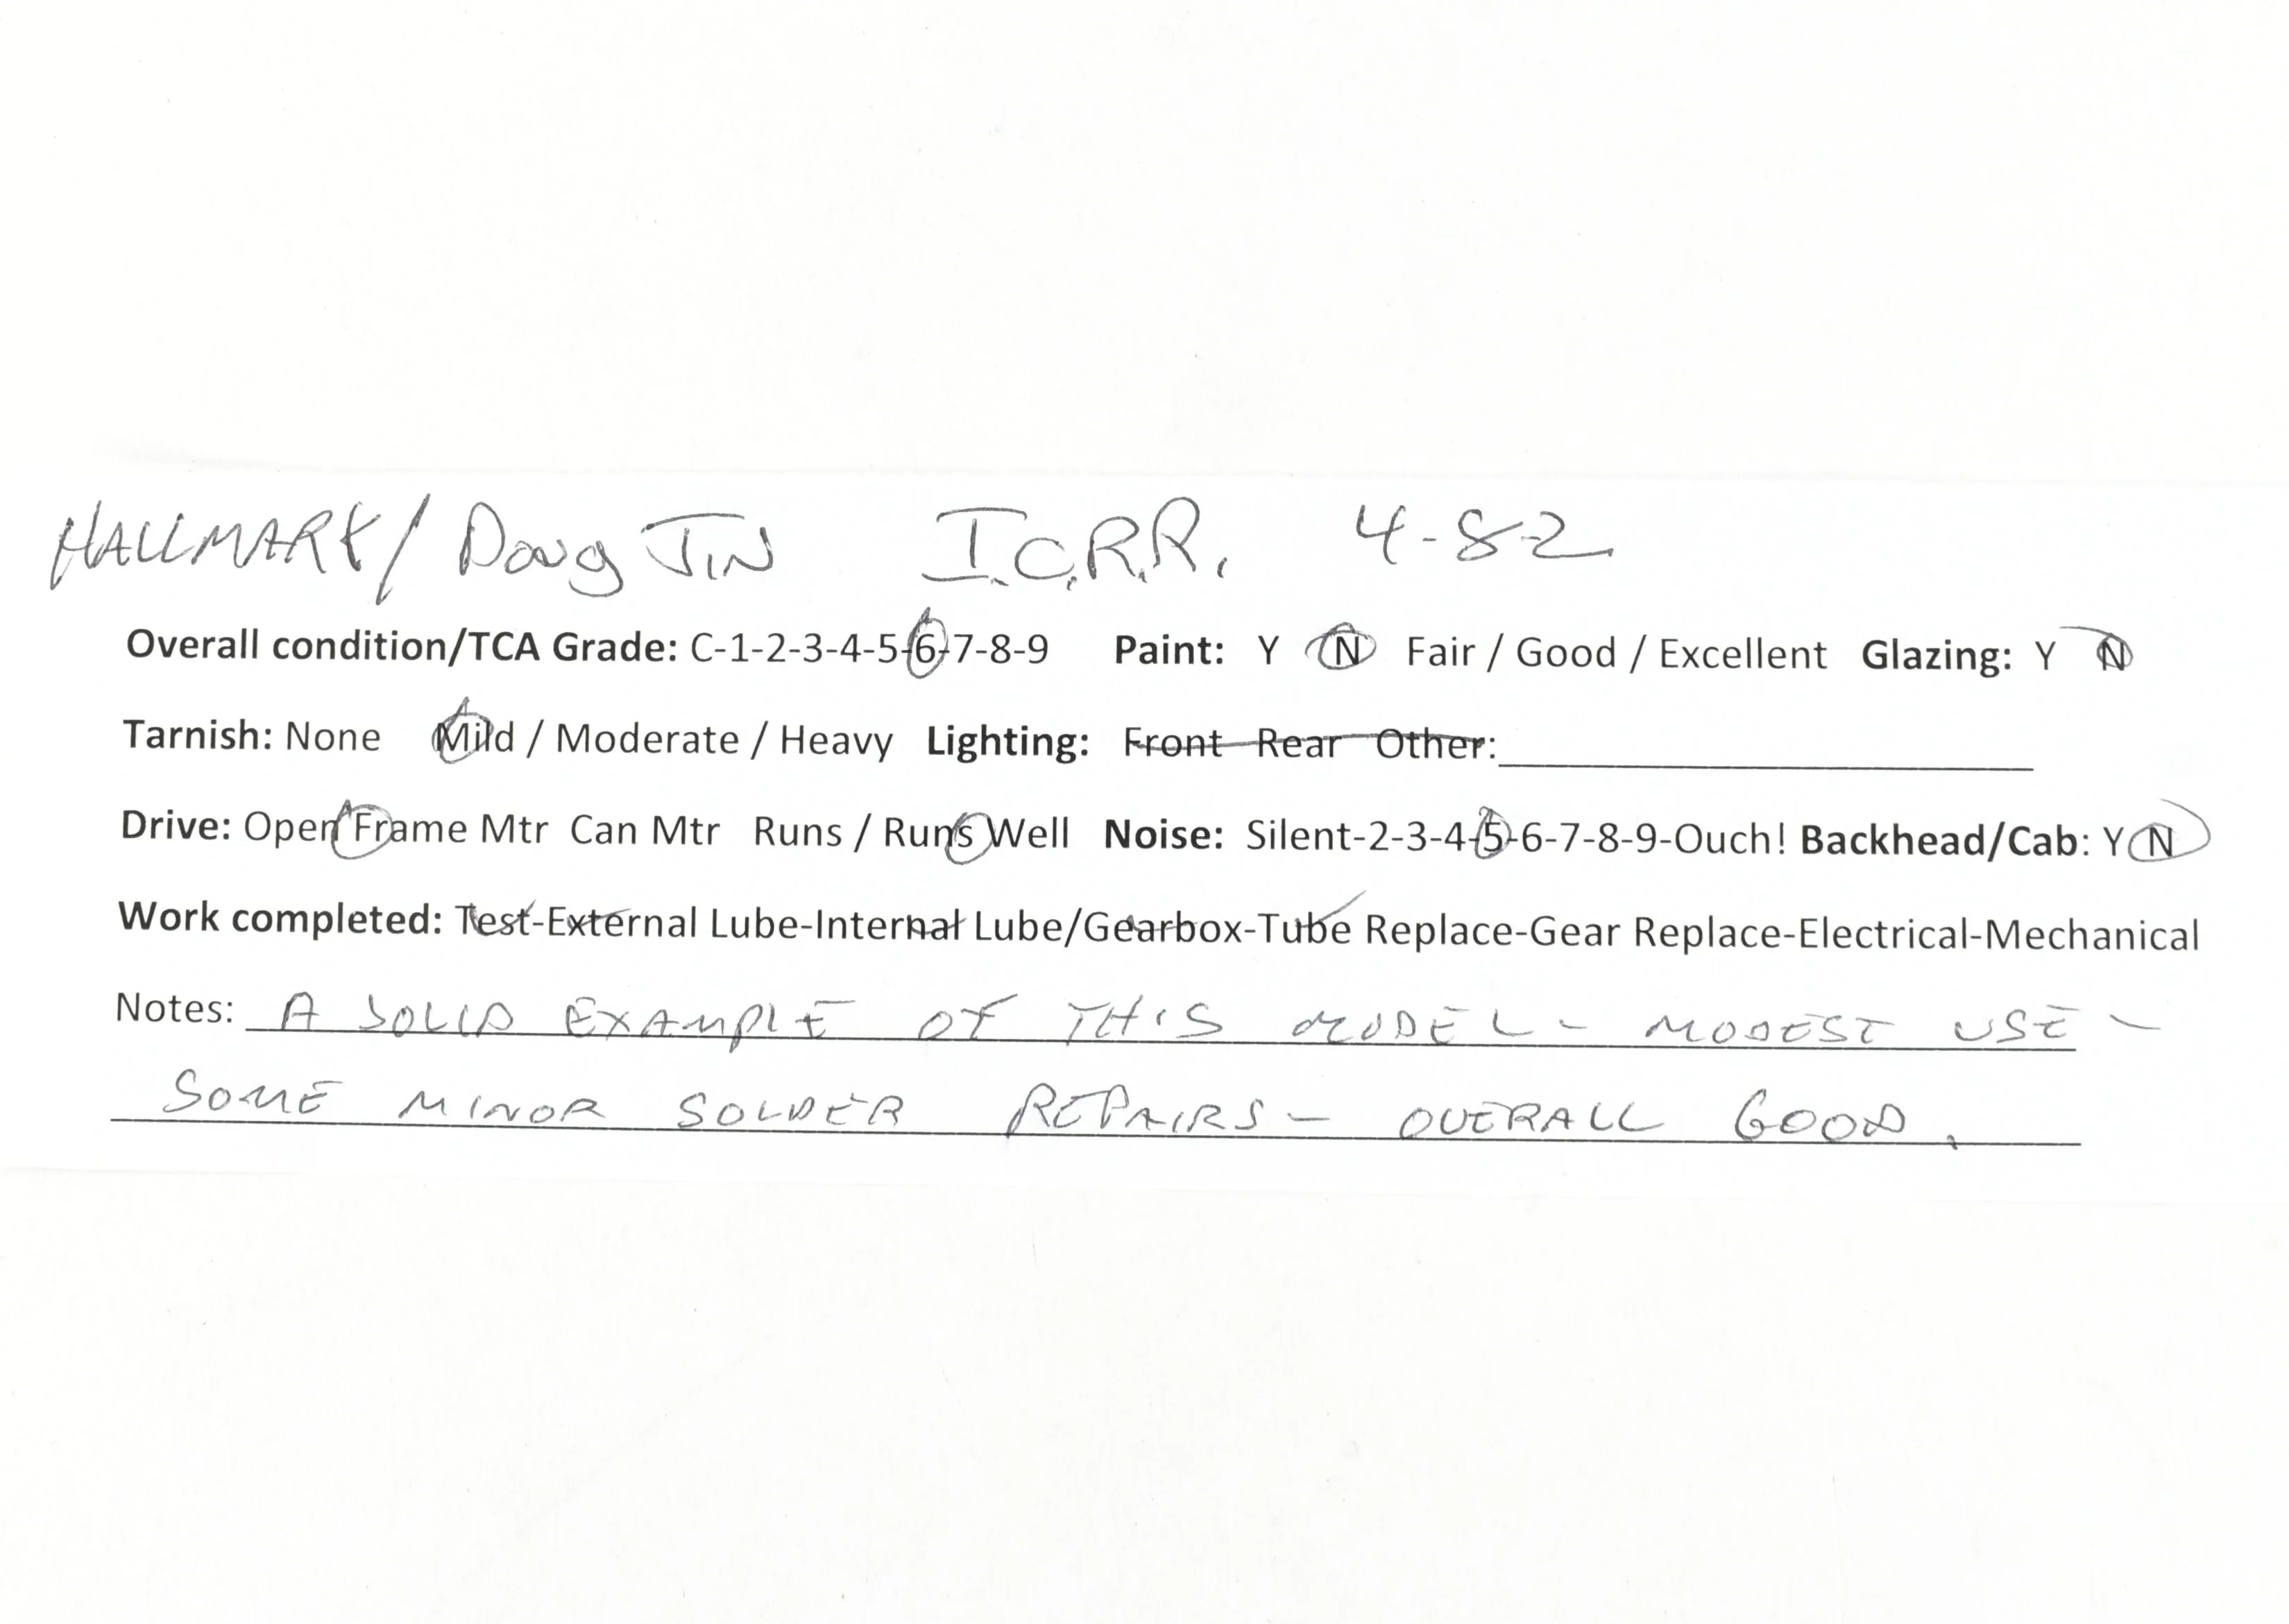 HALLMARK/ Doug JIN I.C.R.R. 4-8-2
Overall condition/TCA Grade: C-1-2-3-4-5-6-7-8-9 Paint: Y N Fair / Good / Excellent Glazing: Y N
Tarnish: None Mild / Moderate / Heavy Lighting: Front Rear Other:
Drive: Open Frame Mtr Can Mtr Runs / Runs Well Noise: Silent-2-3-4-5-6-7-8-9-Ouch! Backhead/Cab: Y N
Work completed: Test-External Lube-Internal Lube/Gearbox-Tube Replace-Gear Replace-Electrical-Mechanical
Notes: A SOLID EXAMPLE OF THIS MODEL - MODEST USE -
SOME MINOR SOLDER REPAIRS - OVERALL GOOD.